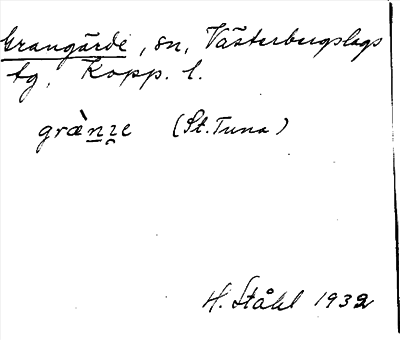 Grangärde, sn, Västerbergslags
tg, Kopp. l.
græ̀nze (St. Tuna)
H. Ståhl 1932